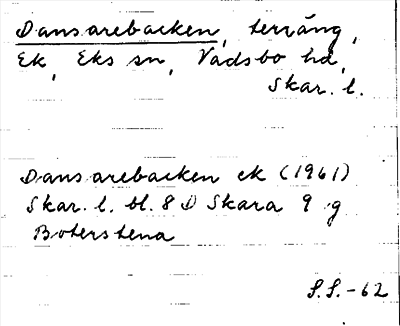 Dansarebacken, terräng,
Ek, Eks sn, Vadsbo hd,
Skar. l.
Dansarebacken ek (1961)
Skar. l. bl. 8 D Skara 9 g
Boterstena
S.S.-62